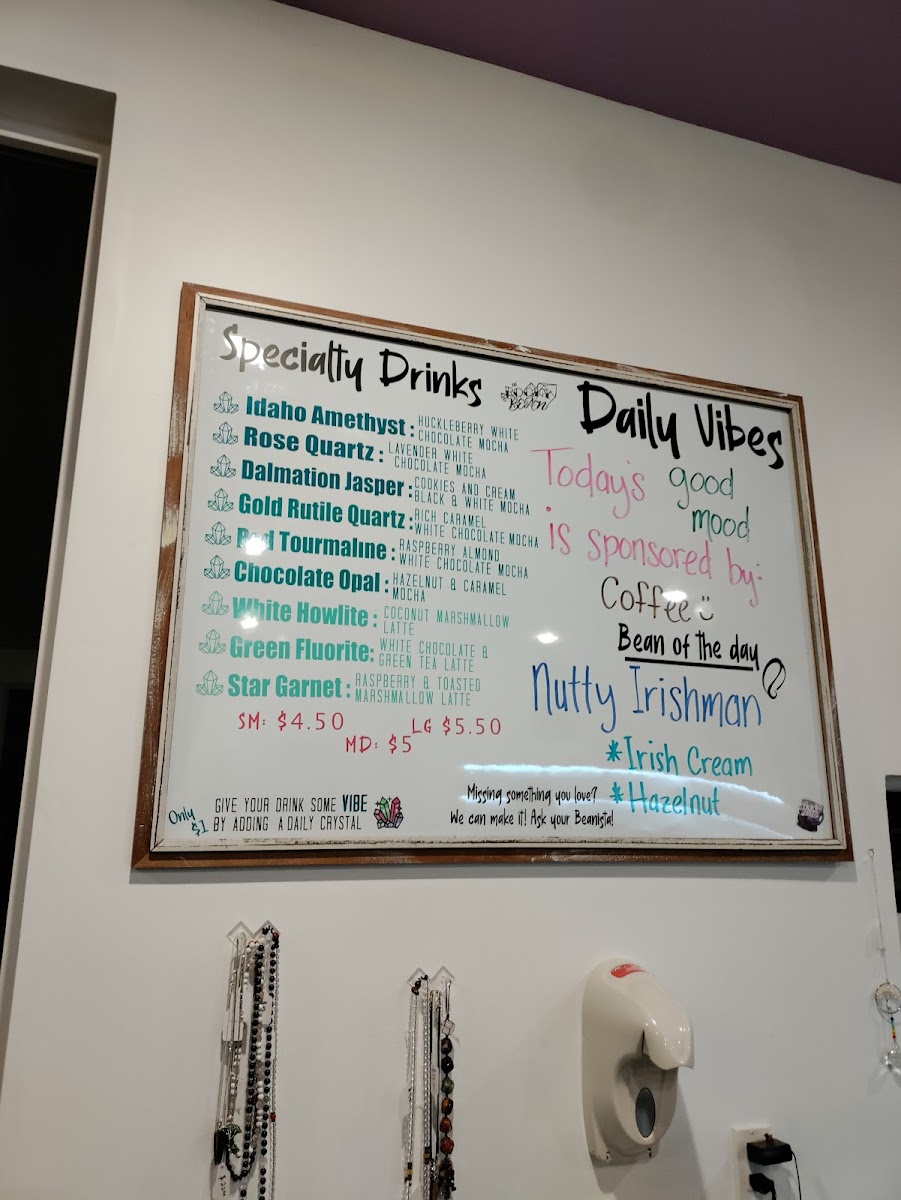 Specialty Drinks
Idaho Amethyst: HUCKLEBERRY WHITE
CHOCOLATE MOCHA
Rose Quartz: LAVENDER WHITE
CHOCOLATE MOCHA
Dalmation Jasper: COOKIES AND CREAM
BLACK & WHITE MOCHA
Gold Rutile Quartz: RICH CARAMEL
WHITE CHOCOLATE MOCHA
Red Tourmaline: RASPBERRY ALMOND
WHITE CHOCOLATE MOCHA
Chocolate Opal: HAZELNUT & CARAMEL
MOCHA
White Howlite: COCONUT MARSHMALLOW
LATTE
Green Fluorite: WHITE CHOCOLATE &
GREEN TEA LATTE
Star Garnet: RASPBERRY & TOASTED
MARSHMALLOW LATTE
SM: $4.50
MD: $5
LG $5.50
Only
$1
GIVE YOUR DRINK SOME VIBE
BY ADDING A DAILY CRYSTAL
Daily Vibes
Today's good
mood
is sponsored by:
Coffee
Bean of the day
Nutty Irishman
*Irish Cream
*Hazelnut
Missing something you love?
We can make it! Ask your Beanista!